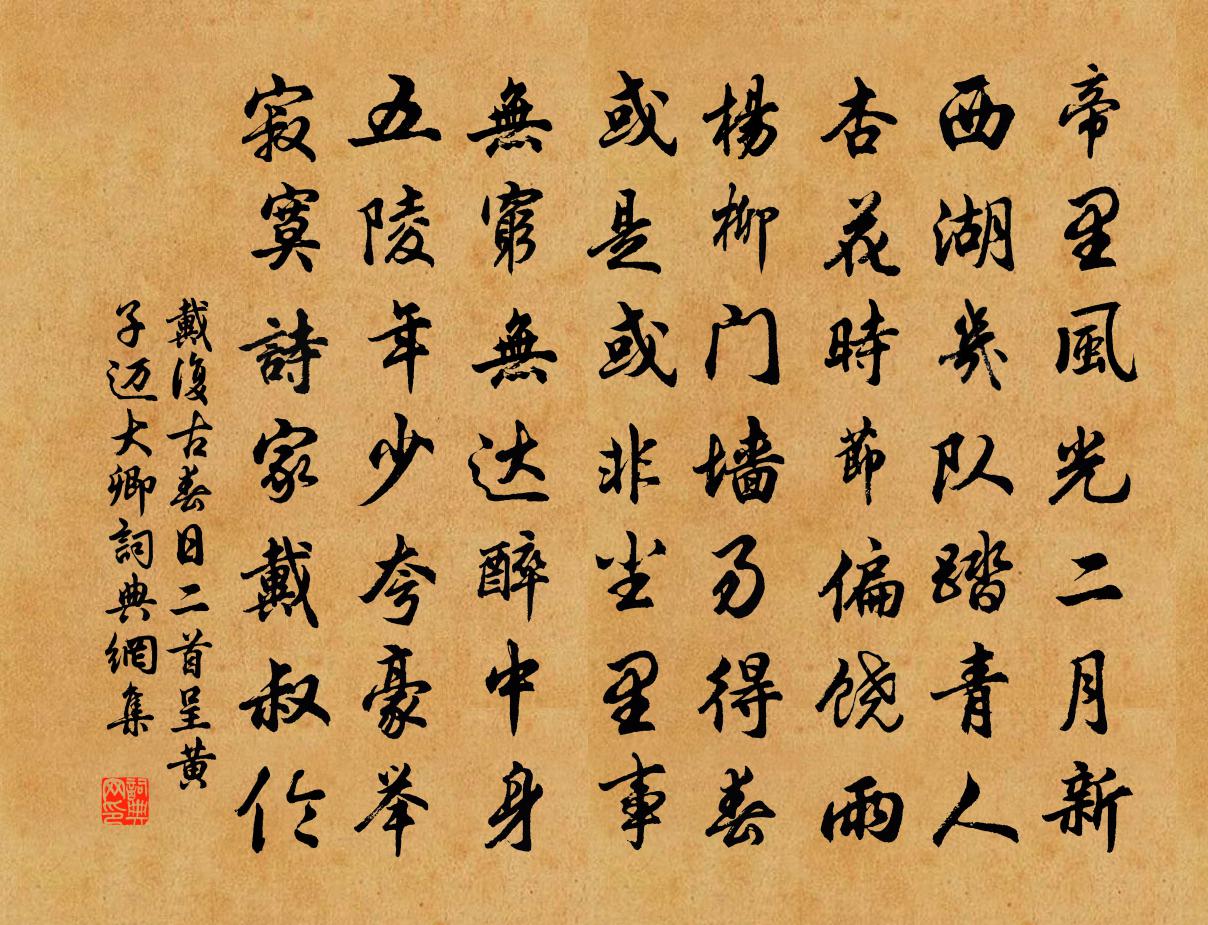 帝里風光二月新
西湖幾队踏青人
杏花時節偏饶雨
楊柳门墙易得春
或是或非尘里事
無窮無达醉中身
五陵年少夸豪举
寂寞詩家戴叔伦
戴復古春日二首呈黄
子迈大卿詞典網集
詞典
网印